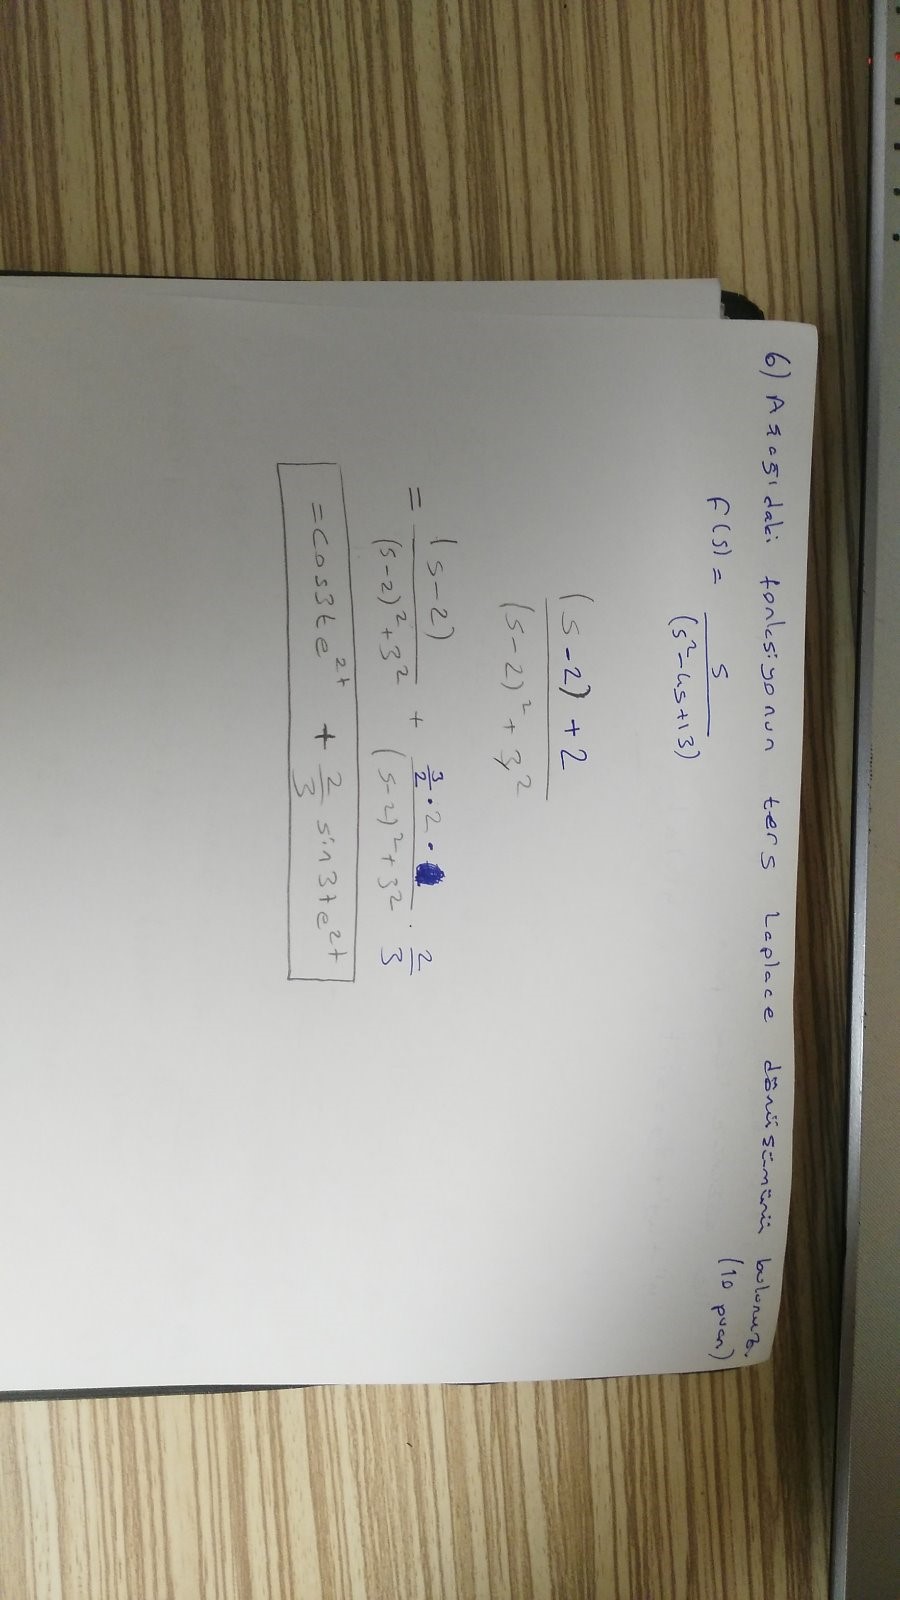 6) Aşağıdaki fonksiyonun ters Laplace dönüşümünü bulunuz.
(10 puan)
F(s) = s / (s²-4s+13)
(s-2) + 2 / (s-2)² + 3²
= (s-2) / (s-2)²+3² + 3/2 · 2 · / (s-2)²+3² · 2/3
= cos3t e^2t + 2/3 sin3t e^2t